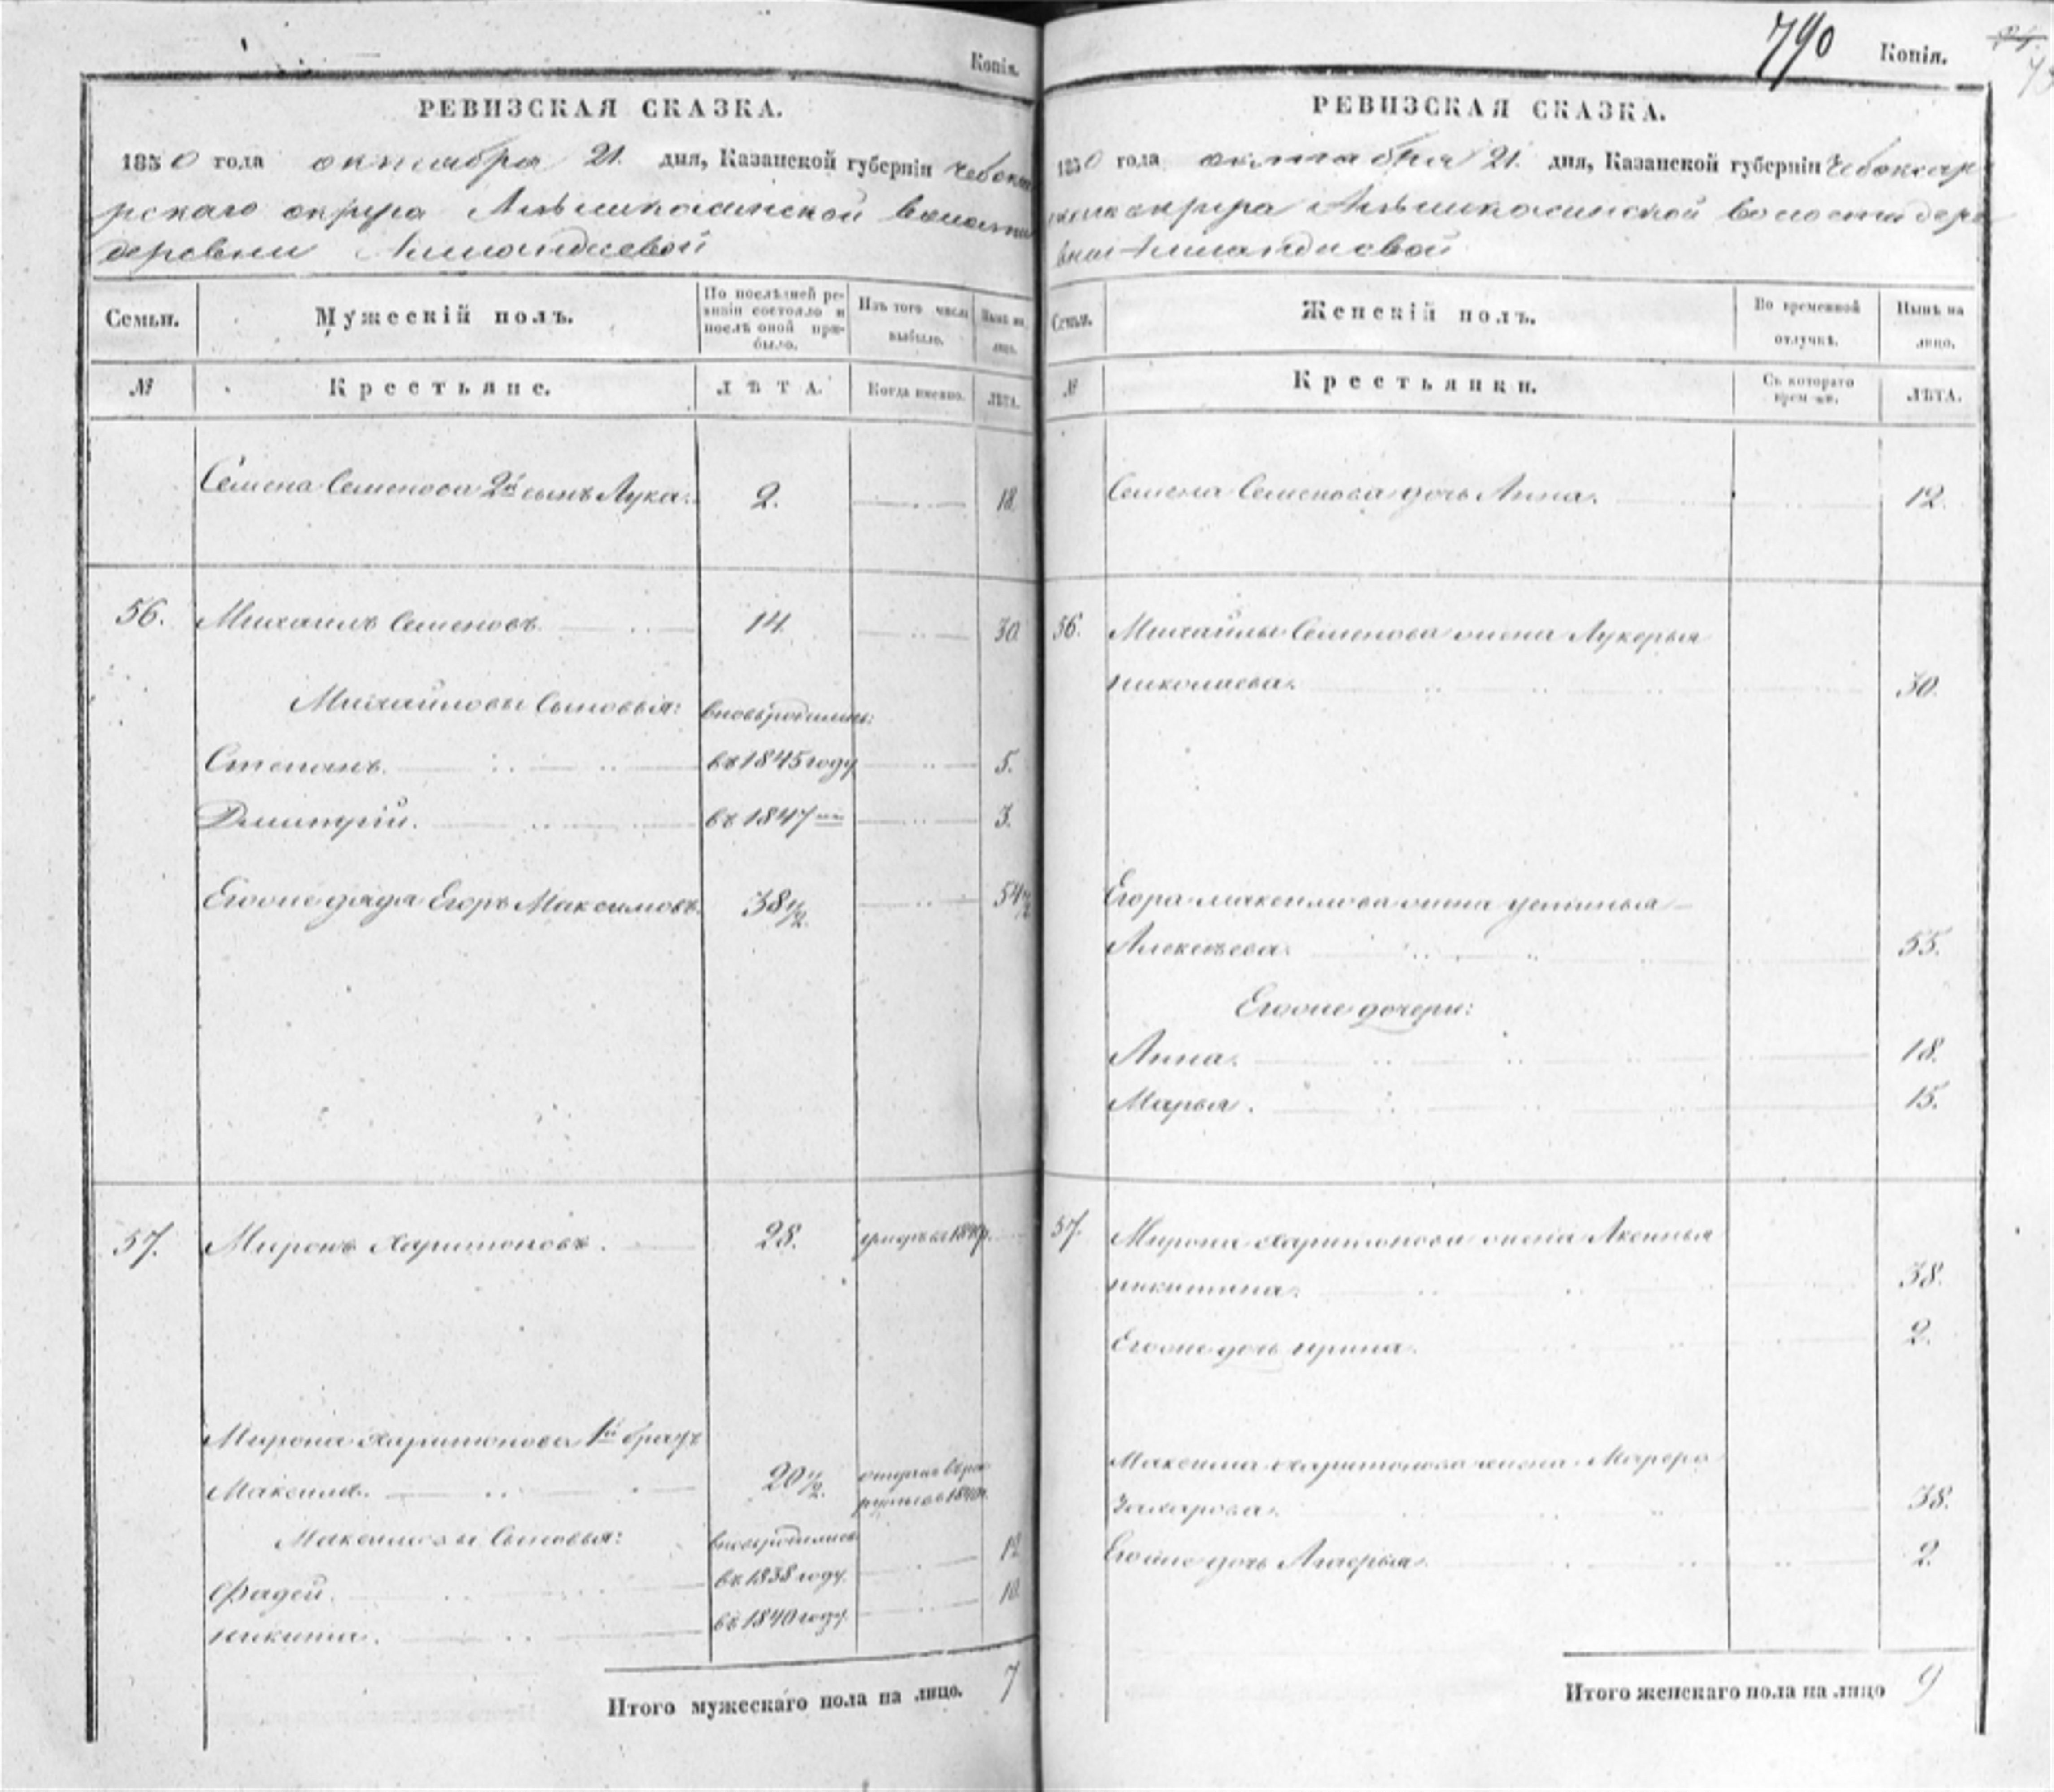 Копія.
РЕВИЗСКАЯ СКАЗКА.
1850 года октября 21. дня, Казанской губерніи Чебокса
рскаго округа волости
деревни
Семьи.
Мужескій полъ.
По послѣдней ре-
визіи состояло и
послѣ оной при-
было.
Изъ того числа
выбыло.
Нынѣ на
лицо.
№
Крестьяне.
ЛѢТА.
Когда именно.
ЛѢТА.
Семена Семенова 2й сынъ Лука. 2. 18.
56. Михаилъ Семеновъ 14. 30.
Михайловы Сыновья: вновь родились:
Степанъ. въ 1845 году 5.
Дмитрій. въ 1847 — 3.
Егоже дядя Егоръ Максимовъ. 38 1/2. 54 1/2
57. Миронъ Харитоновъ. 28.
Мирона Харитонова 1й братъ
Максимъ. 20 1/2. отданъ в рек
руты въ 1840 г.
Максимовы Сыновья: вновь родились
Фадей. въ 1838 году. 12
Никита. въ 1840 году. 10.
Итого мужескаго пола на лицо. 7
790
Копія.
РЕВИЗСКАЯ СКАЗКА.
1850 года октября 21. дня, Казанской губерніи Чебоксар
скаго округа волости дере
вни
Семьи.
Женскій полъ.
Во временной
отлучкѣ.
Нынѣ на
лицо.
№
Крестьянки.
Съ котораго
времени.
ЛѢТА.
Семена Семенова дочь Анна. 12.
56. Михайлы Семенова жена Лукерья
Николаева. 30.
Егора Максимова жена Устинья
Алексѣева. 55.
Егоже дочери:
Анна. 18.
Марья. 15.
57. Мирона Харитонова жена Аксинья
Никитина. 38.
Егоже дочь Ирина. 2.
Максима Харитонова жена
Захарова. 38.
Егоже дочь 2.
Итого женскаго пола на лицо 9